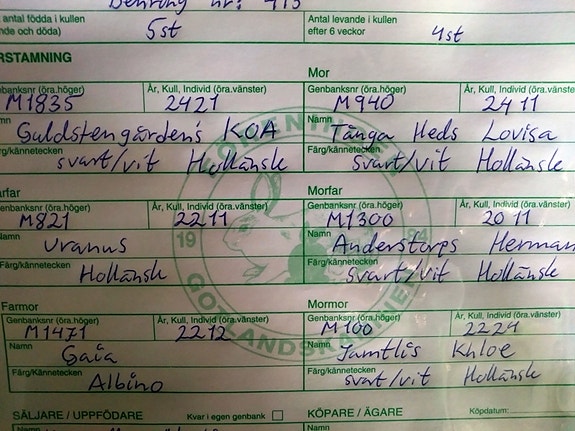 antal födda i kullen
Antal levande i kullen
efter 6 veckor
5st
4st
RSTAMNING
Mor
enbanksnr (öra.höger)
År, Kull, Individ (öra.vänster)
Genbanksnr (öra.höger)
År, Kull, Individ (öra.vänster)
M1835
2421
M940
2411
Namn
Guldstengården's KOA
Tånga Heds Lovisa
Färg/kännetecken
svart/vit Holländsk
svart/vit Holländsk
arfar
Morfar
enbanksnr (öra.höger)
År, Kull, Individ (öra.vänster)
Genbanksnr (öra.höger)
År, Kull, Individ (öra.vänster)
M821
2211
M1300
2011
Namn
Namn
Uranus
Anderstorps Herman
Färg/kännetecken
Färg/kännetecken
Holländsk
svart/vit Holländsk
Farmor
Mormor
Genbanksnr (öra.höger)
År, Kull, Individ (öra.vänster)
Genbanksnr (öra.höger)
År, Kull, Individ (öra.vänster)
M1471
2212
M100
2224
Namn
Namn
Gaia
Jamtlis Khloe
Färg/Kännetecken
Färg/Kännetecken
Albino
svart/vit Holländsk
SÄLJARE / UPPFÖDARE
Kvar i egen genbank
KÖPARE / ÄGARE
Köpdatum:
Namn